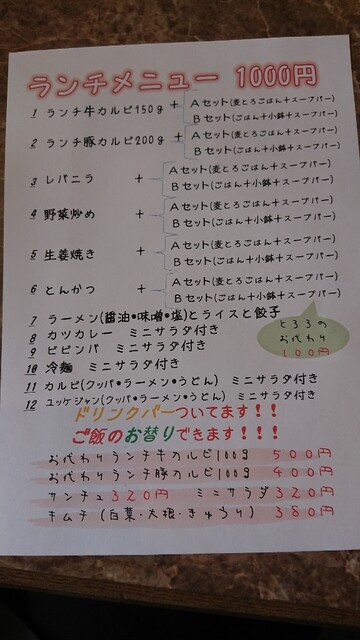 ランチメニュー 1000円
1 ランチ牛カルビ150g + Aセット(麦とろごはん+スープバー)
Bセット(ごはん+小鉢+スープバー)
2 ランチ豚カルビ200g + Aセット(麦とろごはん+スープバー)
Bセット(ごはん+小鉢+スープバー)
3 レバニラ + Aセット(麦とろごはん+スープバー)
Bセット(ごはん+小鉢+スープバー)
4 野菜炒め + Aセット(麦とろごはん+スープバー)
Bセット(ごはん+小鉢+スープバー)
5 生姜焼き + Aセット(麦とろごはん+スープバー)
Bセット(ごはん+小鉢+スープバー)
6 とんかつ + Aセット(麦とろごはん+スープバー)
Bセット(ごはん+小鉢+スープバー)
7 ラーメン(醤油•味噌•塩)とライスと餃子
8 カツカレー ミニサラダ付き
9 ビビンバ ミニサラダ付き
10 冷麺 ミニサラダ付き
11 カルビ(クッパ•ラーメン•うどん) ミニサラダ付き
12 ユッケジャン(クッパ•ラーメン•うどん) ミニサラダ付き
とろろの
お代わり
100円
ドリンクバーついてます!!!
ご飯のお替りできます!!!
お代わりランチ牛カルビ100g 500円
お代わりランチ豚カルビ100g 400円
サンチュ320円 ミニサラダ 320円
キムチ(白菜・大根・きゅうり) 380円